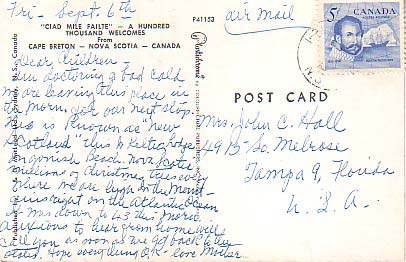 Fri - Sept. 6th
"CIAD MILE FAILTE" - A HUNDRED
THOUSAND WELCOMES
From
CAPE BRETON - NOVA SCOTIA - CANADA
P41153
air Mail
5¢
CANADA
POST CARD
Dear Children -
Am doctoring a bad cold
are leaving this place in
the morn, for our next stop.
This is known as "New
Scotland" this is Keltic Lodge
Ingonish Beach. Nova Scotia
millions of Christmas trees every
where we are high in the Mount-
ains right on the Atlantic Ocean
it was down to 43 this morn.
Anxious to hear from home will
call you as soon as we get back to the
states. Hope everything O.K - love Mother
Mrs. John C. Hall
4915-So. Melrose
Tampa 9, Florida
U.S.A.